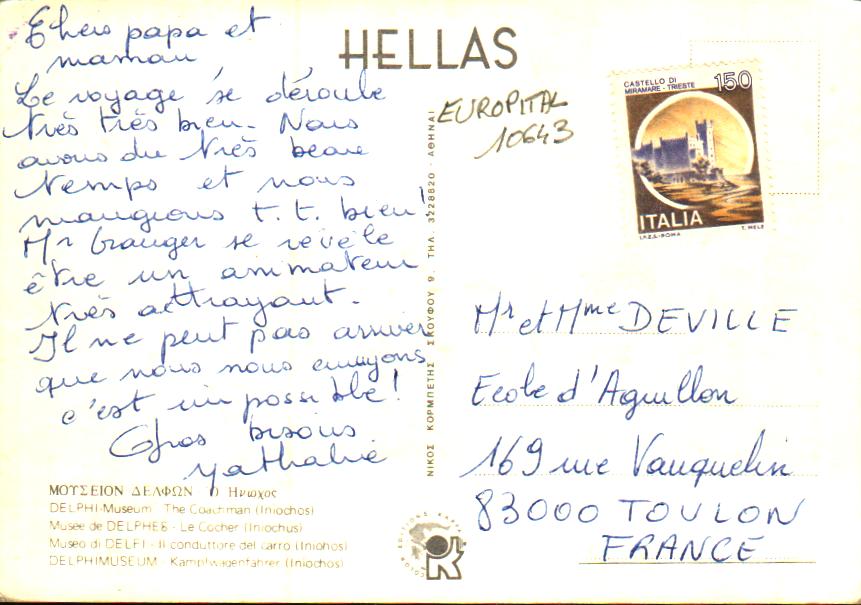 Chers papa et
maman
Le voyage se déroule
très très bien. Nous
avons du très beau
temps et nous
mangions t. t. bien!
Mr Granger se révèle
être un animateur
très attrayant.
Il ne peut pas arriver
que nous nous ennuyons
c'est impossible!
Gros bisous
Nathalie
ΜΟΥΣΕΙΟΝ ΔΕΛΦΩΝ Ο Ηνιοχος
DELPHI-Museum The Coachman (Iniochos)
Musee de DELPHES - Le Cocher (Iniochus)
Museo di DELFI - Il conduttore del carro (Iniohos)
DELPHIMUSEUM - Kampfwagenfahrer (Iniochos)
HELLAS
ΝΙΚΟΣ ΚΟΡΜΠΕΤΗΣ ΣΚΟΥΦΟΥ 9, ΤΗΛ. 3228820 - ΑΘΗΝΑΙ
OK
EUROPITAL
10643
CASTELLO DI
MIRAMARE - TRIESTE
150
ITALIA
I.P.Z.S.-ROMA T. MELE
Mr et Mme DEVILLE
Ecole d'Aguillon
169 rue Vauquelin
83000 TOULON
FRANCE